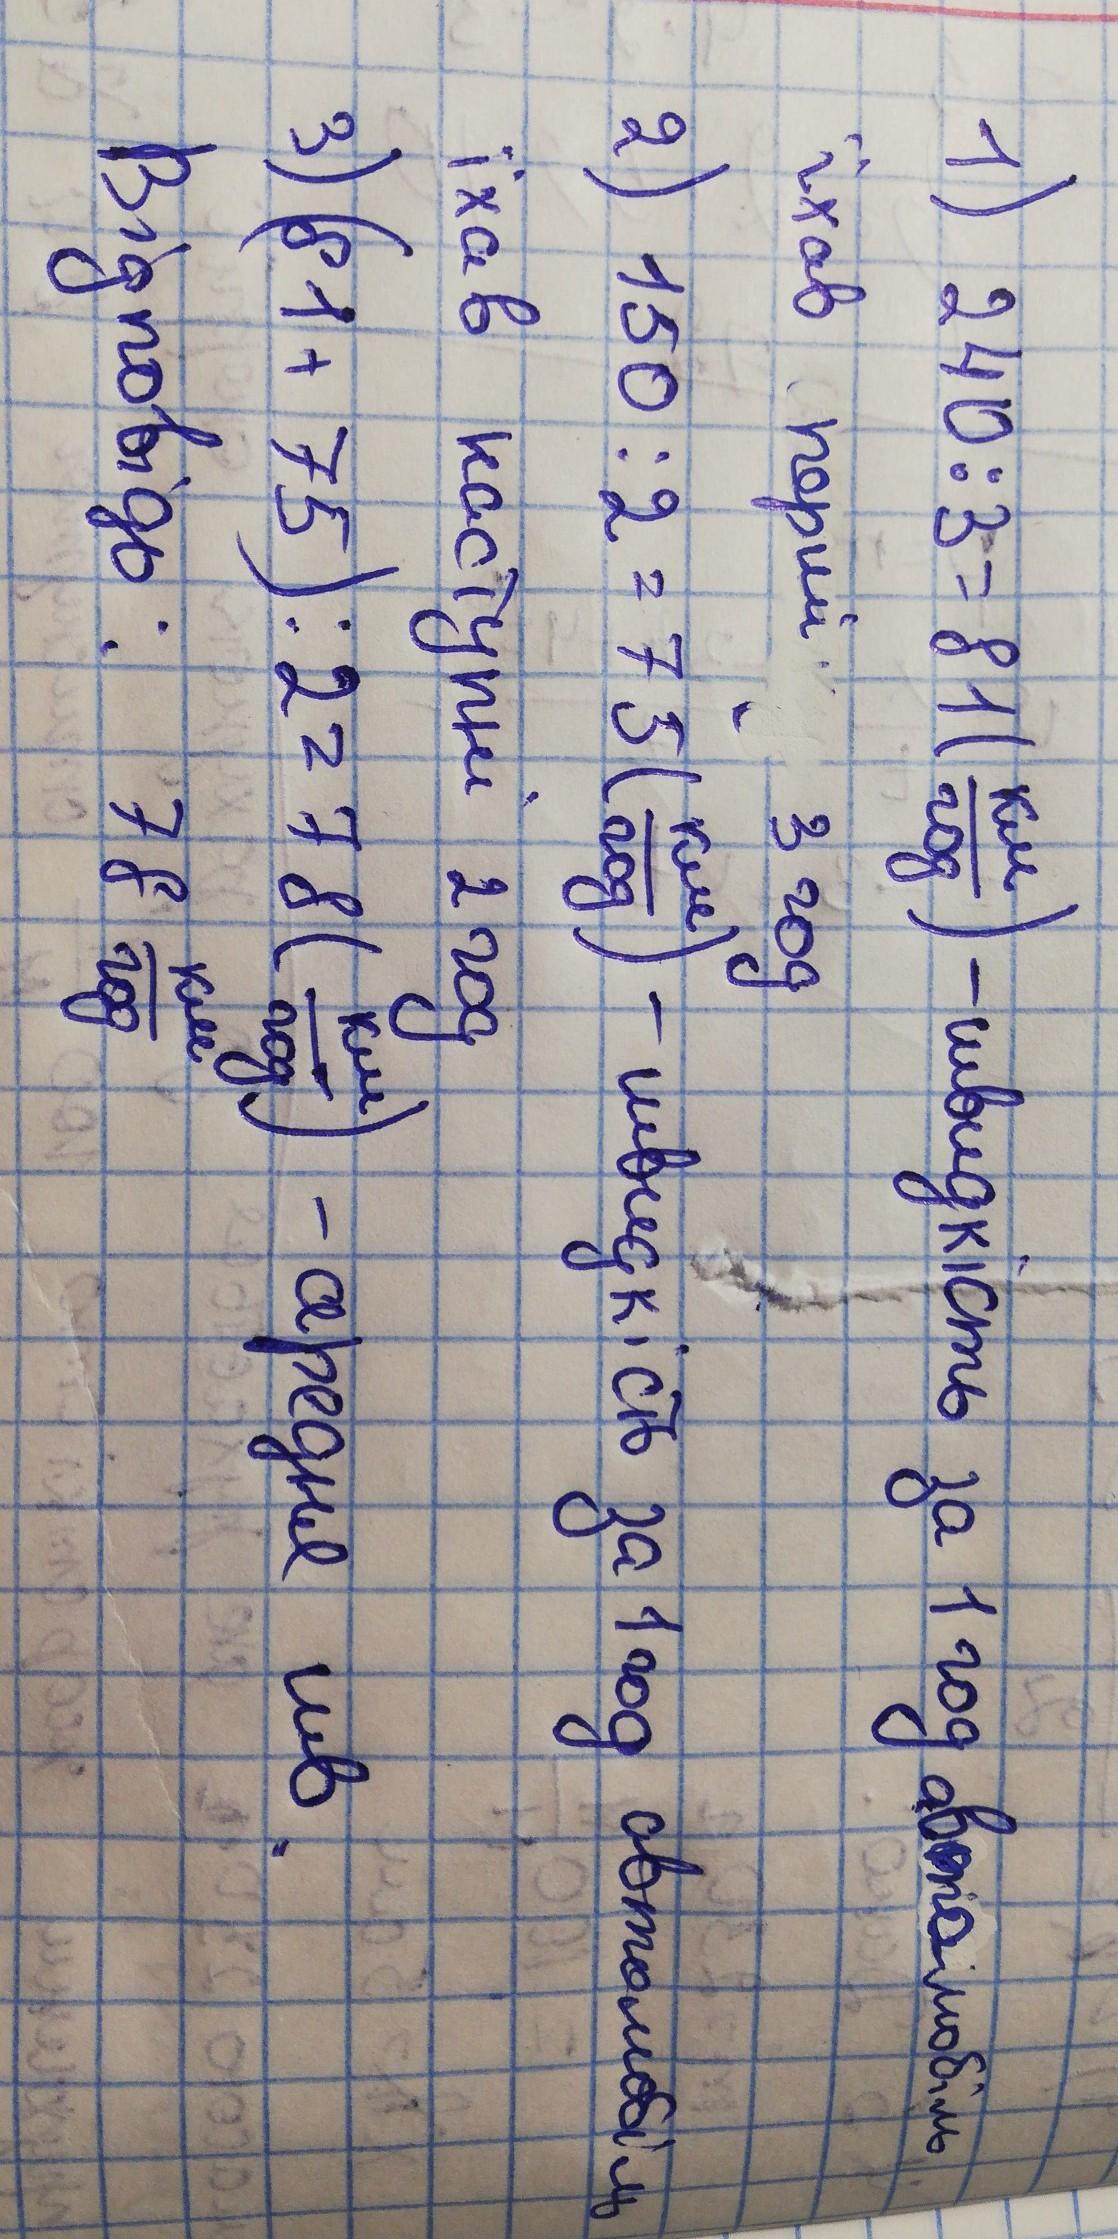 1) 240:3=81(км/год) - швидкість за 1 год автомобіль
їхав перші 3 год
2) 150:2=75(км/год) - швидкість за 1 год автомобіль
їхав наступні 2 год
3) (81+75):2=78(км/год) - середня шв.
Відповідь: 78 км/год